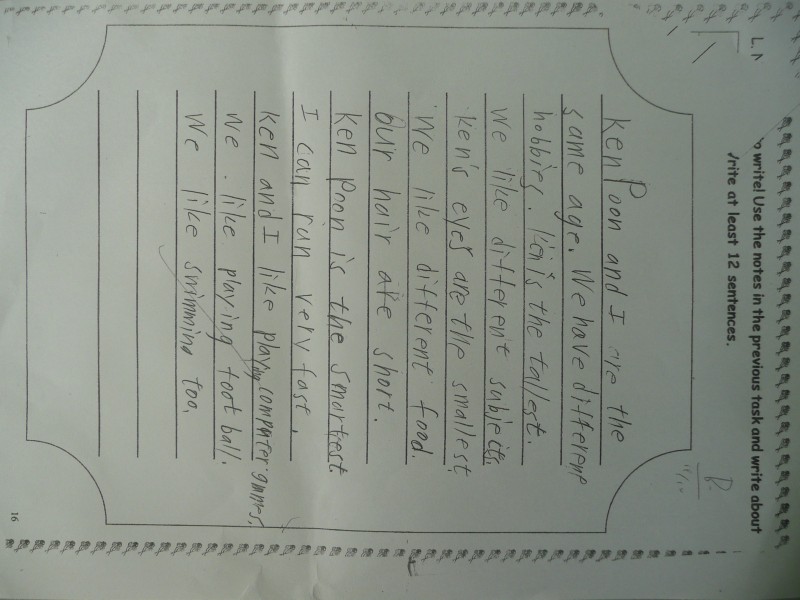 write! Use the notes in the previous task and write about
Write at least 12 sentences.
Ken Poon and I are the
same age. We have different
hobbies. Ken is the tallest.
We like different subjects.
Ken's eyes are the smallest
We like different food.
Our hair are short.
Ken Poon is the smartest
I can run very fast.
Ken and I like playing computer games.
We like playing football.
We like swimming too.
16